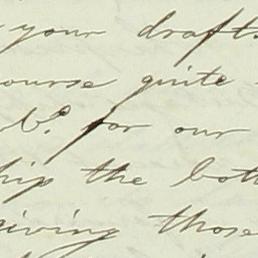 your draft.
ourse quite
for our
hip the bott
giving those